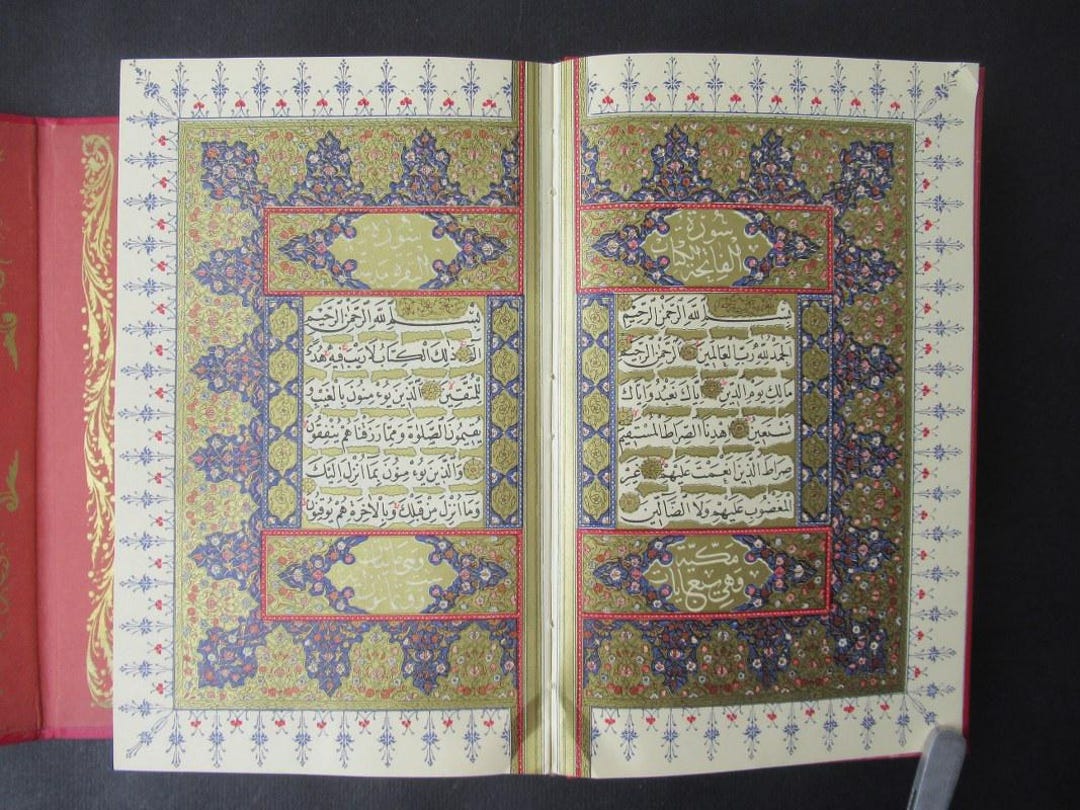 سورة
فاتحة الكتاب
بسم الله الرحمن الرحيم
الحمد لله رب العالمين الرحمن الرحيم
مالك يوم الدين اياك نعبد واياك
نستعين اهدنا الصراط المستقيم
صراط الذين انعمت عليهم غير
المغضوب عليهم ولا الضالين
مكية
وهي سبع ايات
سورة
بسم الله الرحمن الرحيم
الم ذلك الكتاب لا ريب فيه هدى
للمتقين الذين يؤمنون بالغيب
يقيمون الصلوة ومما رزقناهم ينفقون
والذين يؤمنون بما انزل اليك
وما انزل من قبلك وبالاخرة هم يوقنون